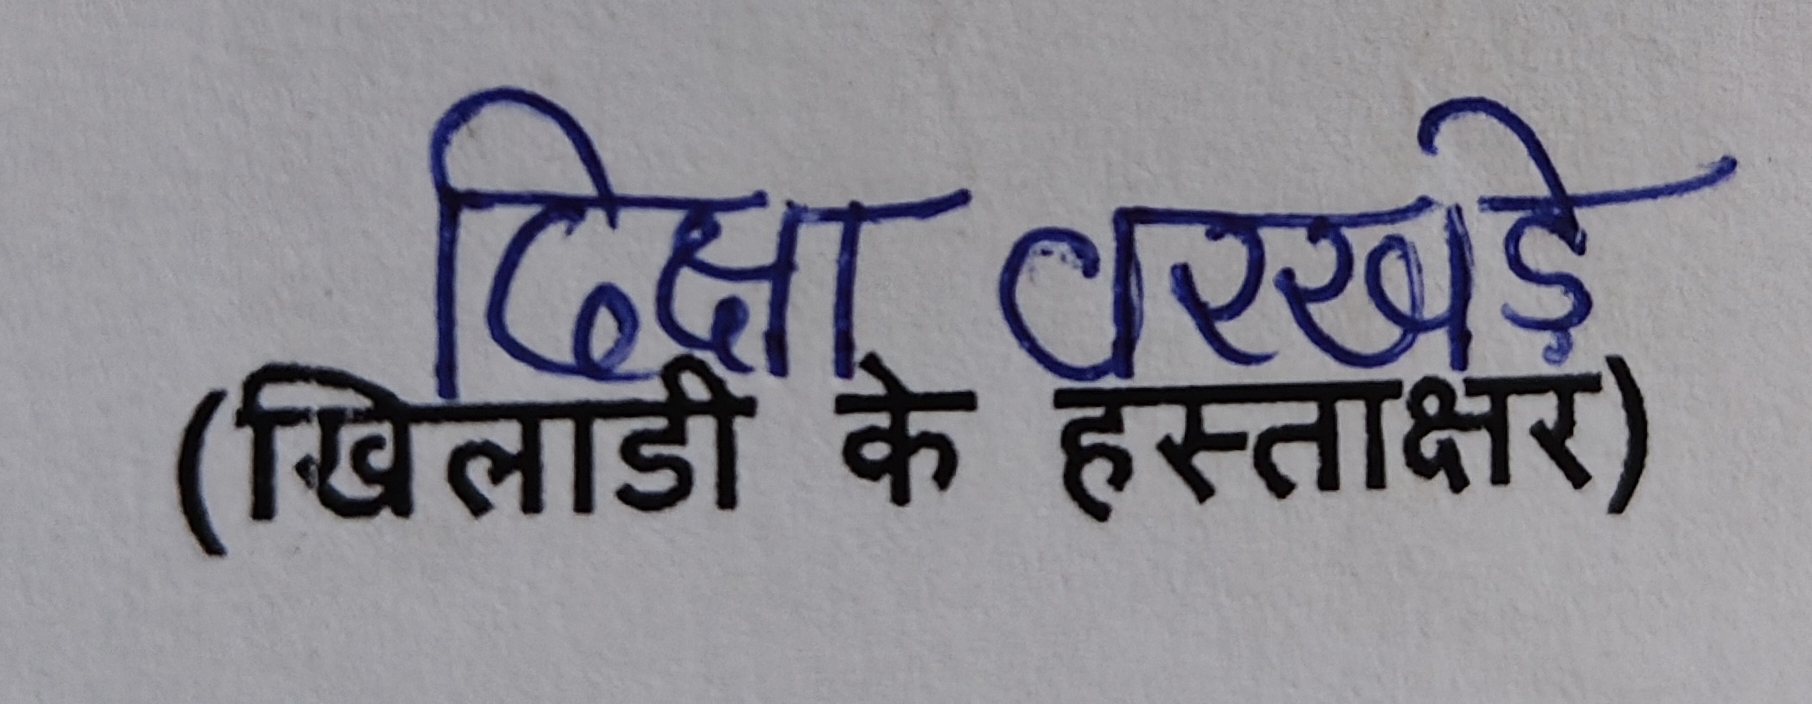 दिक्षा वरखड़े
(खिलाडी के हस्ताक्षर)